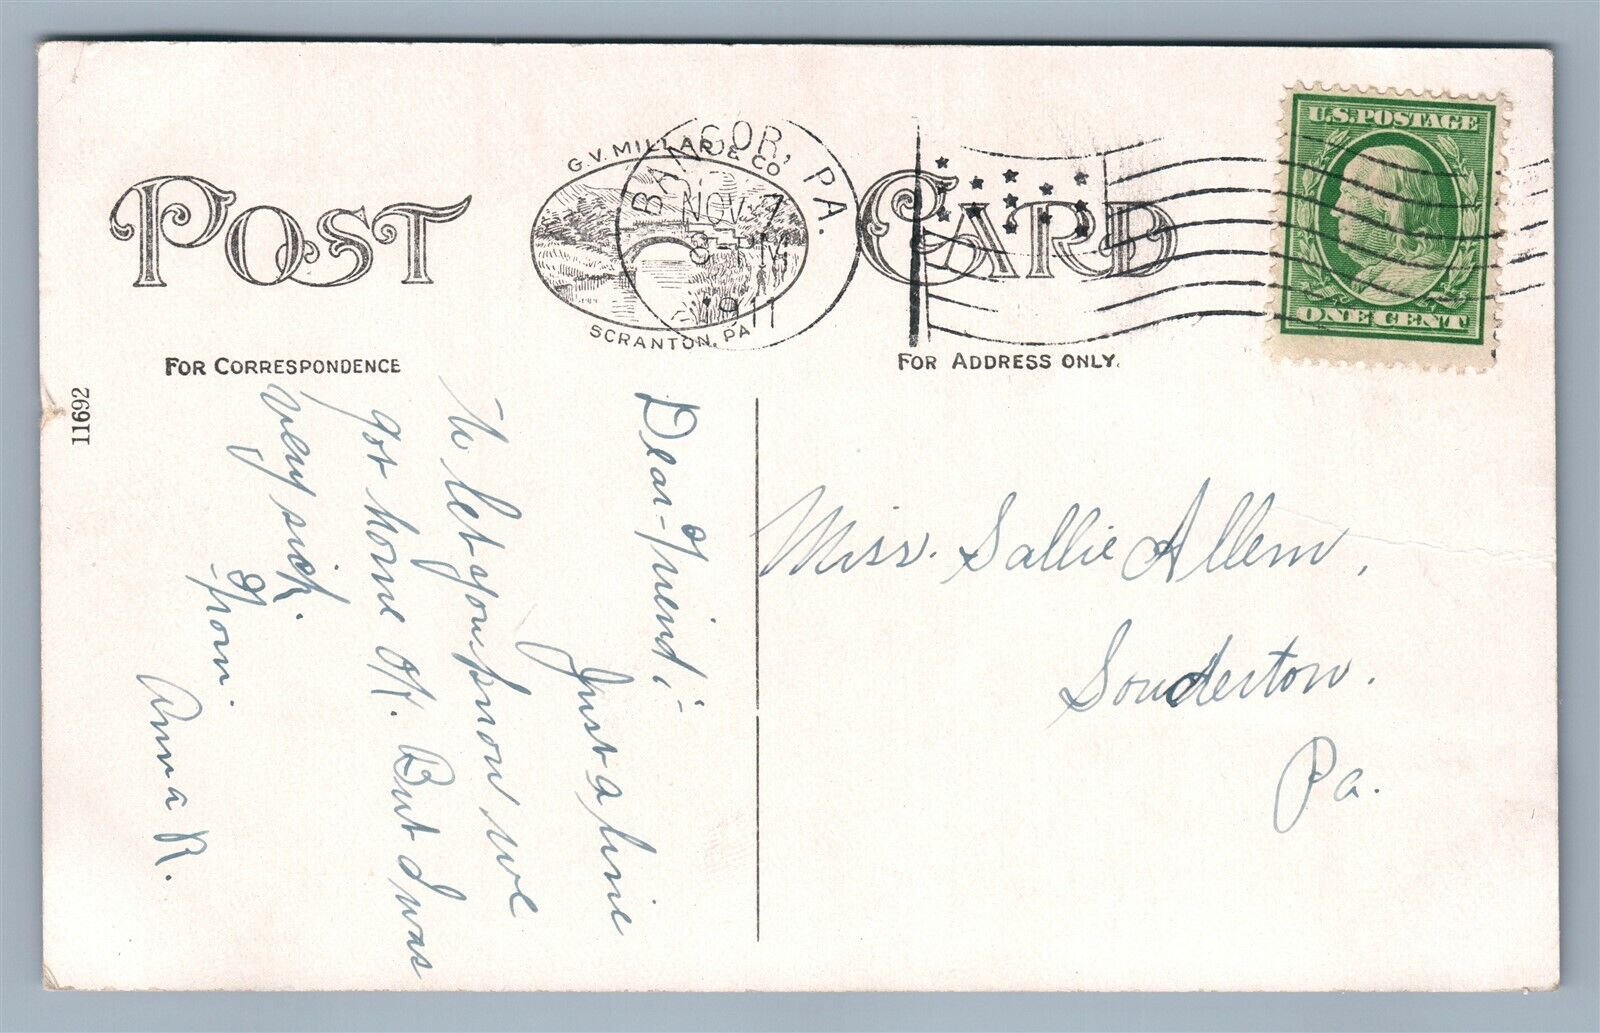 POST CARD
G.V. MILLAR & CO
SCRANTON, PA
BANGOR, PA.
NOV 7
8-PM
1911
U.S. POSTAGE
ONE CENT
FOR CORRESPONDENCE
FOR ADDRESS ONLY.
11692
Dear-Friend;-
Just a line
to let you know we
got home O.K. But I was
very sick.
From.
Anna R.
Miss. Sallie Allem,
Souderton.
Pa.